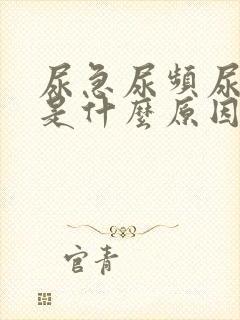 尿急尿頻尿
是什麼原因
官青